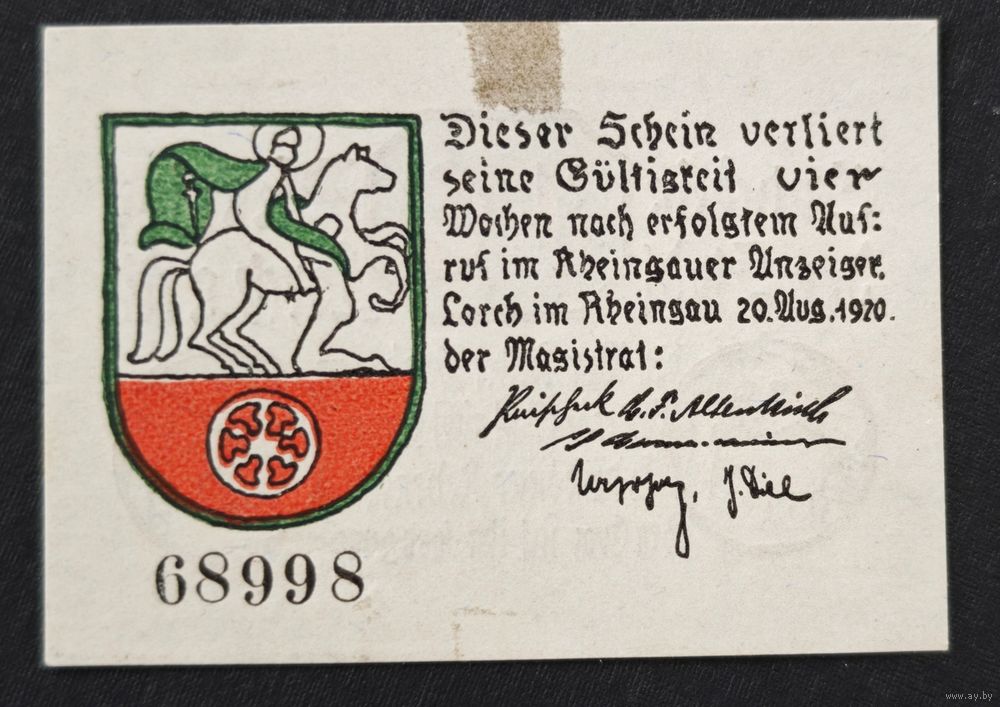 Dieser Schein verliert
seine Gültigkeit vier
Wochen nach erfolgtem Auf:
ruf im Rheingauer Anzeiger.
Lorch im Rheingau 20. Aug. 1920.
der Magistrat:
J. Diel
68998
www.ay.by